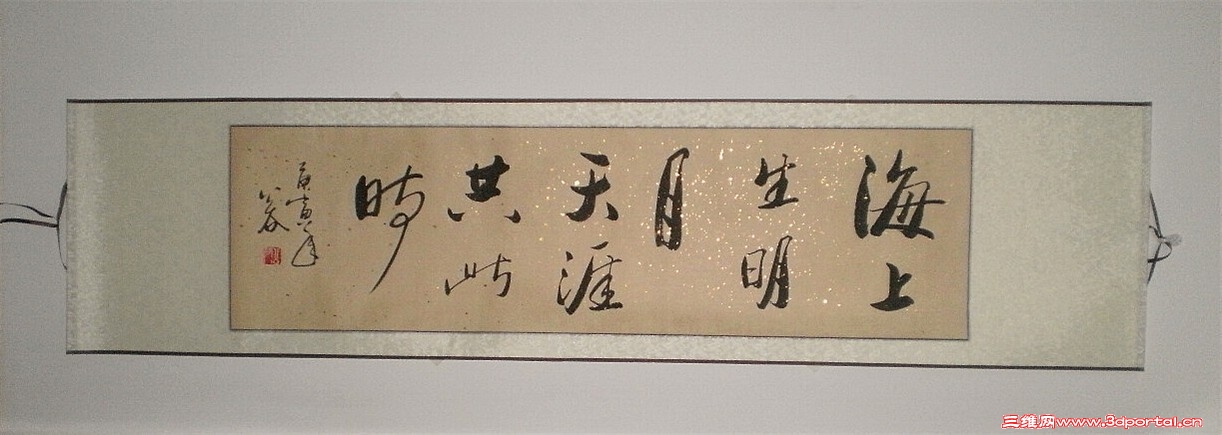 海上
生明
月
天涯
共此
时
庚寅年
三维网www.3dportal.cn